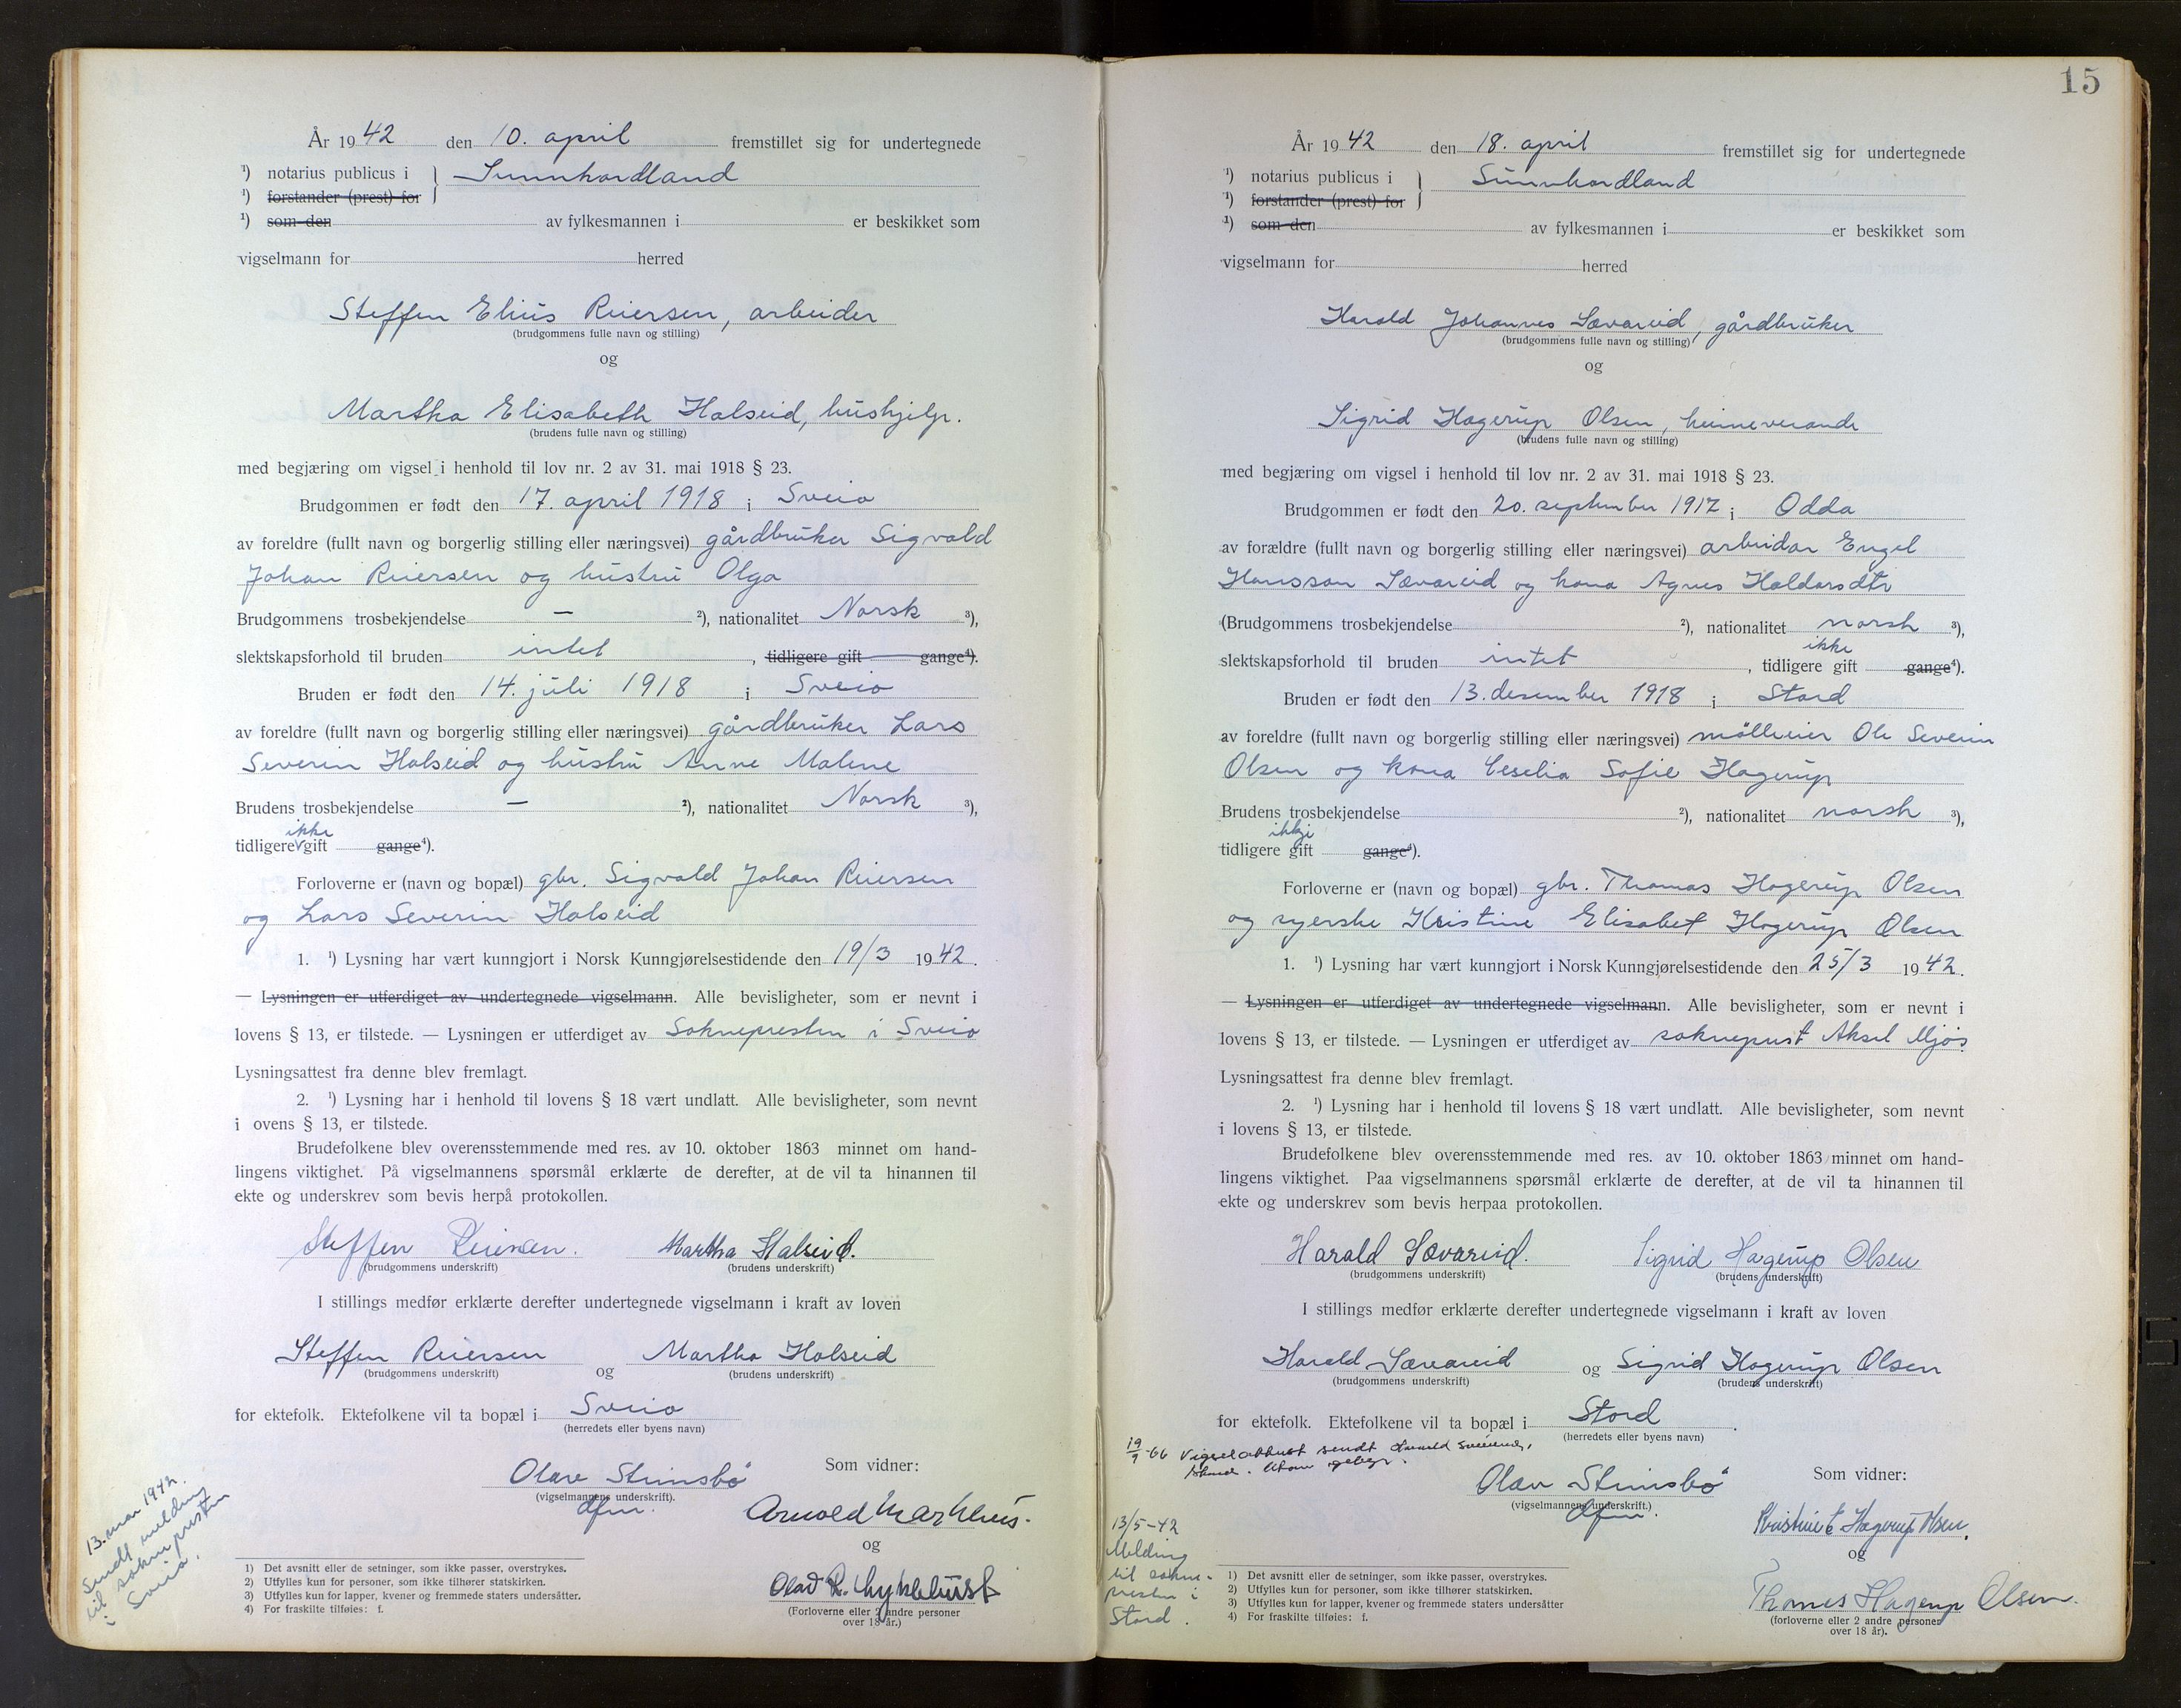 År 1942 den 10. april fremstillet sig for undertegnede
¹) notarius publicus i } Sunnhordland
¹) forstander (prest) for
¹) som den av fylkesmannen i er beskikket som
vigselmann for herred
Steffen Elius Reiersen, arbeider
(brudgommens fulle navn og stilling)
og
Martha Elisabeth Halseid, hushjelp.
(brudens fulle navn og stilling)
med begjæring om vigsel i henhold til lov nr. 2 av 31. mai 1918 § 23.
Brudgommen er født den 17. april 1918 i Sveio
av foreldre (fullt navn og borgerlig stilling eller næringsvei) gårdbruker Sigvald
Johan Reiersen og hustru Olga
Brudgommens trosbekjendelse — ²), nationalitet Norsk ³),
slektskapsforhold til bruden intet , tidligere gift gange⁴).
Bruden er født den 14. juli 1918 i Sveio
av foreldre (fullt navn og borgerlig stilling eller næringsvei) gårdbruker Lars
Severin Halseid og hustru Anne Malene
Brudens trosbekjendelse — ²), nationalitet Norsk ³),
ikke
tidligere gift gange⁴).
Forloverne er (navn og bopæl) gbr. Sigvald Johan Reiersen
og Lars Severin Halseid
1. ¹) Lysning har vært kunngjort i Norsk Kunngjørelsestidende den 19/3 1942.
— Lysningen er utferdiget av undertegnede vigselmann. Alle bevisligheter, som er nevnt i
lovens § 13, er tilstede. — Lysningen er utferdiget av Soknepresten i Sveio
Lysningsattest fra denne blev fremlagt.
2. ¹) Lysning har i henhold til lovens § 18 vært undlatt. Alle bevisligheter, som nevnt
i ovens § 13, er tilstede.
Brudefolkene blev overensstemmende med res. av 10. oktober 1863 minnet om hand-
lingens viktighet. På vigselmannens spørsmål erklærte de derefter, at de vil ta hinannen til
ekte og underskrev som bevis herpå protokollen.
Steffen Reiersen. Martha Halseid.
(brudgommens underskrift) (brudens underskrift)
I stillings medfør erklærte derefter undertegnede vigselmann i kraft av loven
Steffen Reiersen og Martha Halseid
(brudgommens underskrift) (brudens underskrift)
for ektefolk. Ektefolkene vil ta bopæl i Sveio
(herredets eller byens navn)
Som vidner:
Olav Steinsbø
(vigselmannens underskrift).
dfm.
Arnold Markhus.
og
Olav R. Lyklehurst
(Forloverne eller 2 andre personer
over 18 år.)
13. mai 1942.
Sendt melding
til soknepresten
i Sveio.
1) Det avsnitt eller de setninger, som ikke passer, overstrykes.
2) Utfylles kun for personer, som ikke tilhører statskirken.
3) Utfylles kun for lapper, kvener og fremmede staters undersåtter.
4) For fraskilte tilføies: f.
15
År 1942 den 18. april fremstillet sig for undertegnede
¹) notarius publicus i } Sunnhordland
¹) forstander (prest) for
¹) som den av fylkesmannen i er beskikket som
vigselmann for herred
Harald Johannes Sævareid, gårdbruker
(brudgommens fulle navn og stilling)
og
Sigrid Hagerup Olsen, heimeverande
(brudens fulle navn og stilling)
med begjæring om vigsel i henhold til lov nr. 2 av 31. mai 1918 § 23.
Brudgommen er født den 20. september 1917 i Odda
av forældre (fullt navn og borgerlig stilling eller næringsvei) arbeidar Engel
Hansson Sævareid og kona Agnes Haldorsdtr
(Brudgommens trosbekjendelse ²), nationalitet norsk ³),
ikke
slektskapsforhold til bruden intet , tidligere gift gange⁴).
Bruden er født den 13. desember 1918 i Stord
av foreldre (fullt navn og borgerlig stilling eller næringsvei) mølleeier Ole Severin
Olsen og kona Ceselia Sofie Hagerup
Brudens trosbekjendelse ²), nationalitet norsk ³),
ikkje
tidligere gift gange⁴).
Forloverne er (navn og bopæl) gbr. Thomas Hagerup Olsen
og syerske Kristine Elisabet Hagerup Olsen
1. ¹) Lysning har vært kunngjort i Norsk Kunngjørelsestidende den 25/3 1942.
— Lysningen er utferdiget av undertegnede vigselmann. Alle bevisligheter, som er nevnt i
lovens § 13, er tilstede. — Lysningen er utferdiget av sokneprest Aksel Mjøs
Lysningsattest fra denne blev fremlagt.
2. ¹) Lysning har i henhold til lovens § 18 vært undlatt. Alle bevisligheter, som nevnt
i lovens § 13, er tilstede.
Brudefolkene blev overensstemmende med res. av 10. oktober 1863 minnet om hand-
lingens viktighet. Paa vigselmannens spørsmål erklærte de derefter, at de vil ta hinannen til
ekte og underskrev som bevis herpaa protokollen.
Harald Sævareid. Sigrid Hagerup Olsen
(brudgommens underskrift) (brudens underskrift)
I stillings medfør erklærte derefter undertegnede vigselmann i kraft av loven
Harald Sævareid og Sigrid Hagerup Olsen
(brudgommens underskrift) (brudens underskrift)
for ektefolk. Ektefolkene vil ta bopæl i Stord.
(herredets eller byens navn)
19/9-66 Vigselattest sendt Harald Sævareid,
Uten gebyr.
Som vidner:
Olav Steinsbø
(vigselmannens underskrift.)
dfm.
Kristine E Hagerup Olsen.
og
Thomas Hagerup Olsen.
(forloverne eller 2 andre personer
over 18 år).
13/5-42
Melding
til sokne-
presten i
Stord.
1) Det avsnitt eller de setninger, som ikke passer, overstrykes.
2) Utfylles kun for personer, som ikke tilhører statskirken.
3) Utfylles kun for lapper, kvener og fremmede staters undersåtter
4) For fraskilte tilføies: f.